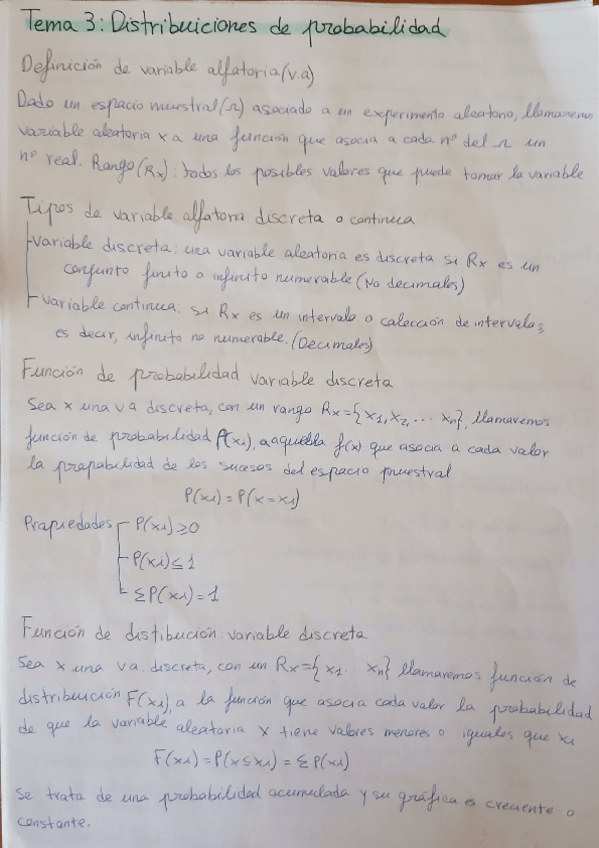 Tema 3: Distribuiciones de probabilidad
Definición de variable alfatoria (v.a)
Dado un espacio muestral (Ω) asociado a un experimento aleatorio, llamaremos
variable aleatoria x a una función que asocia a cada nº del Ω un
nº real. Rango (Rx): todos los posibles valores que puede tomar la variable
Tipos de variable alfatoria discreta o continua
Variable discreta: una variable aleatoria es discreta si Rx es un
conjunto finito o infinito numerable (No decimales)
Variable continua: si Rx es un intervalo o calección de intervalos,
es decir, infinito no numerable. (Decimales)
Función de probabilidad variable discreta
Sea x una va discreta, con un rango Rx={x1, x2, ... xn}, llamaremos
función de probabilidad P(xi), a aquella f(x) que asocia a cada valor
la prapabilidad de los sucesos del espacio muestral
P(xi) = P(x=xi)
Prapiedades P(xi) ≥ 0
P(xi) ≤ 1
ΣP(xi) = 1
Función de distibución variable discreta
Sea x una va. discreta, con un Rx={x1... xn} llamaremos función de
distribuición F(xi), a la función que asocia cada valor la probabilidad
de que la variable aleatoria x tiene valores menores o iguales que xi
F(xi) = P(x≤xi) = ΣP(xi)
Se trata de una probabilidad acumulada y su gráfica es creciente o
constante.